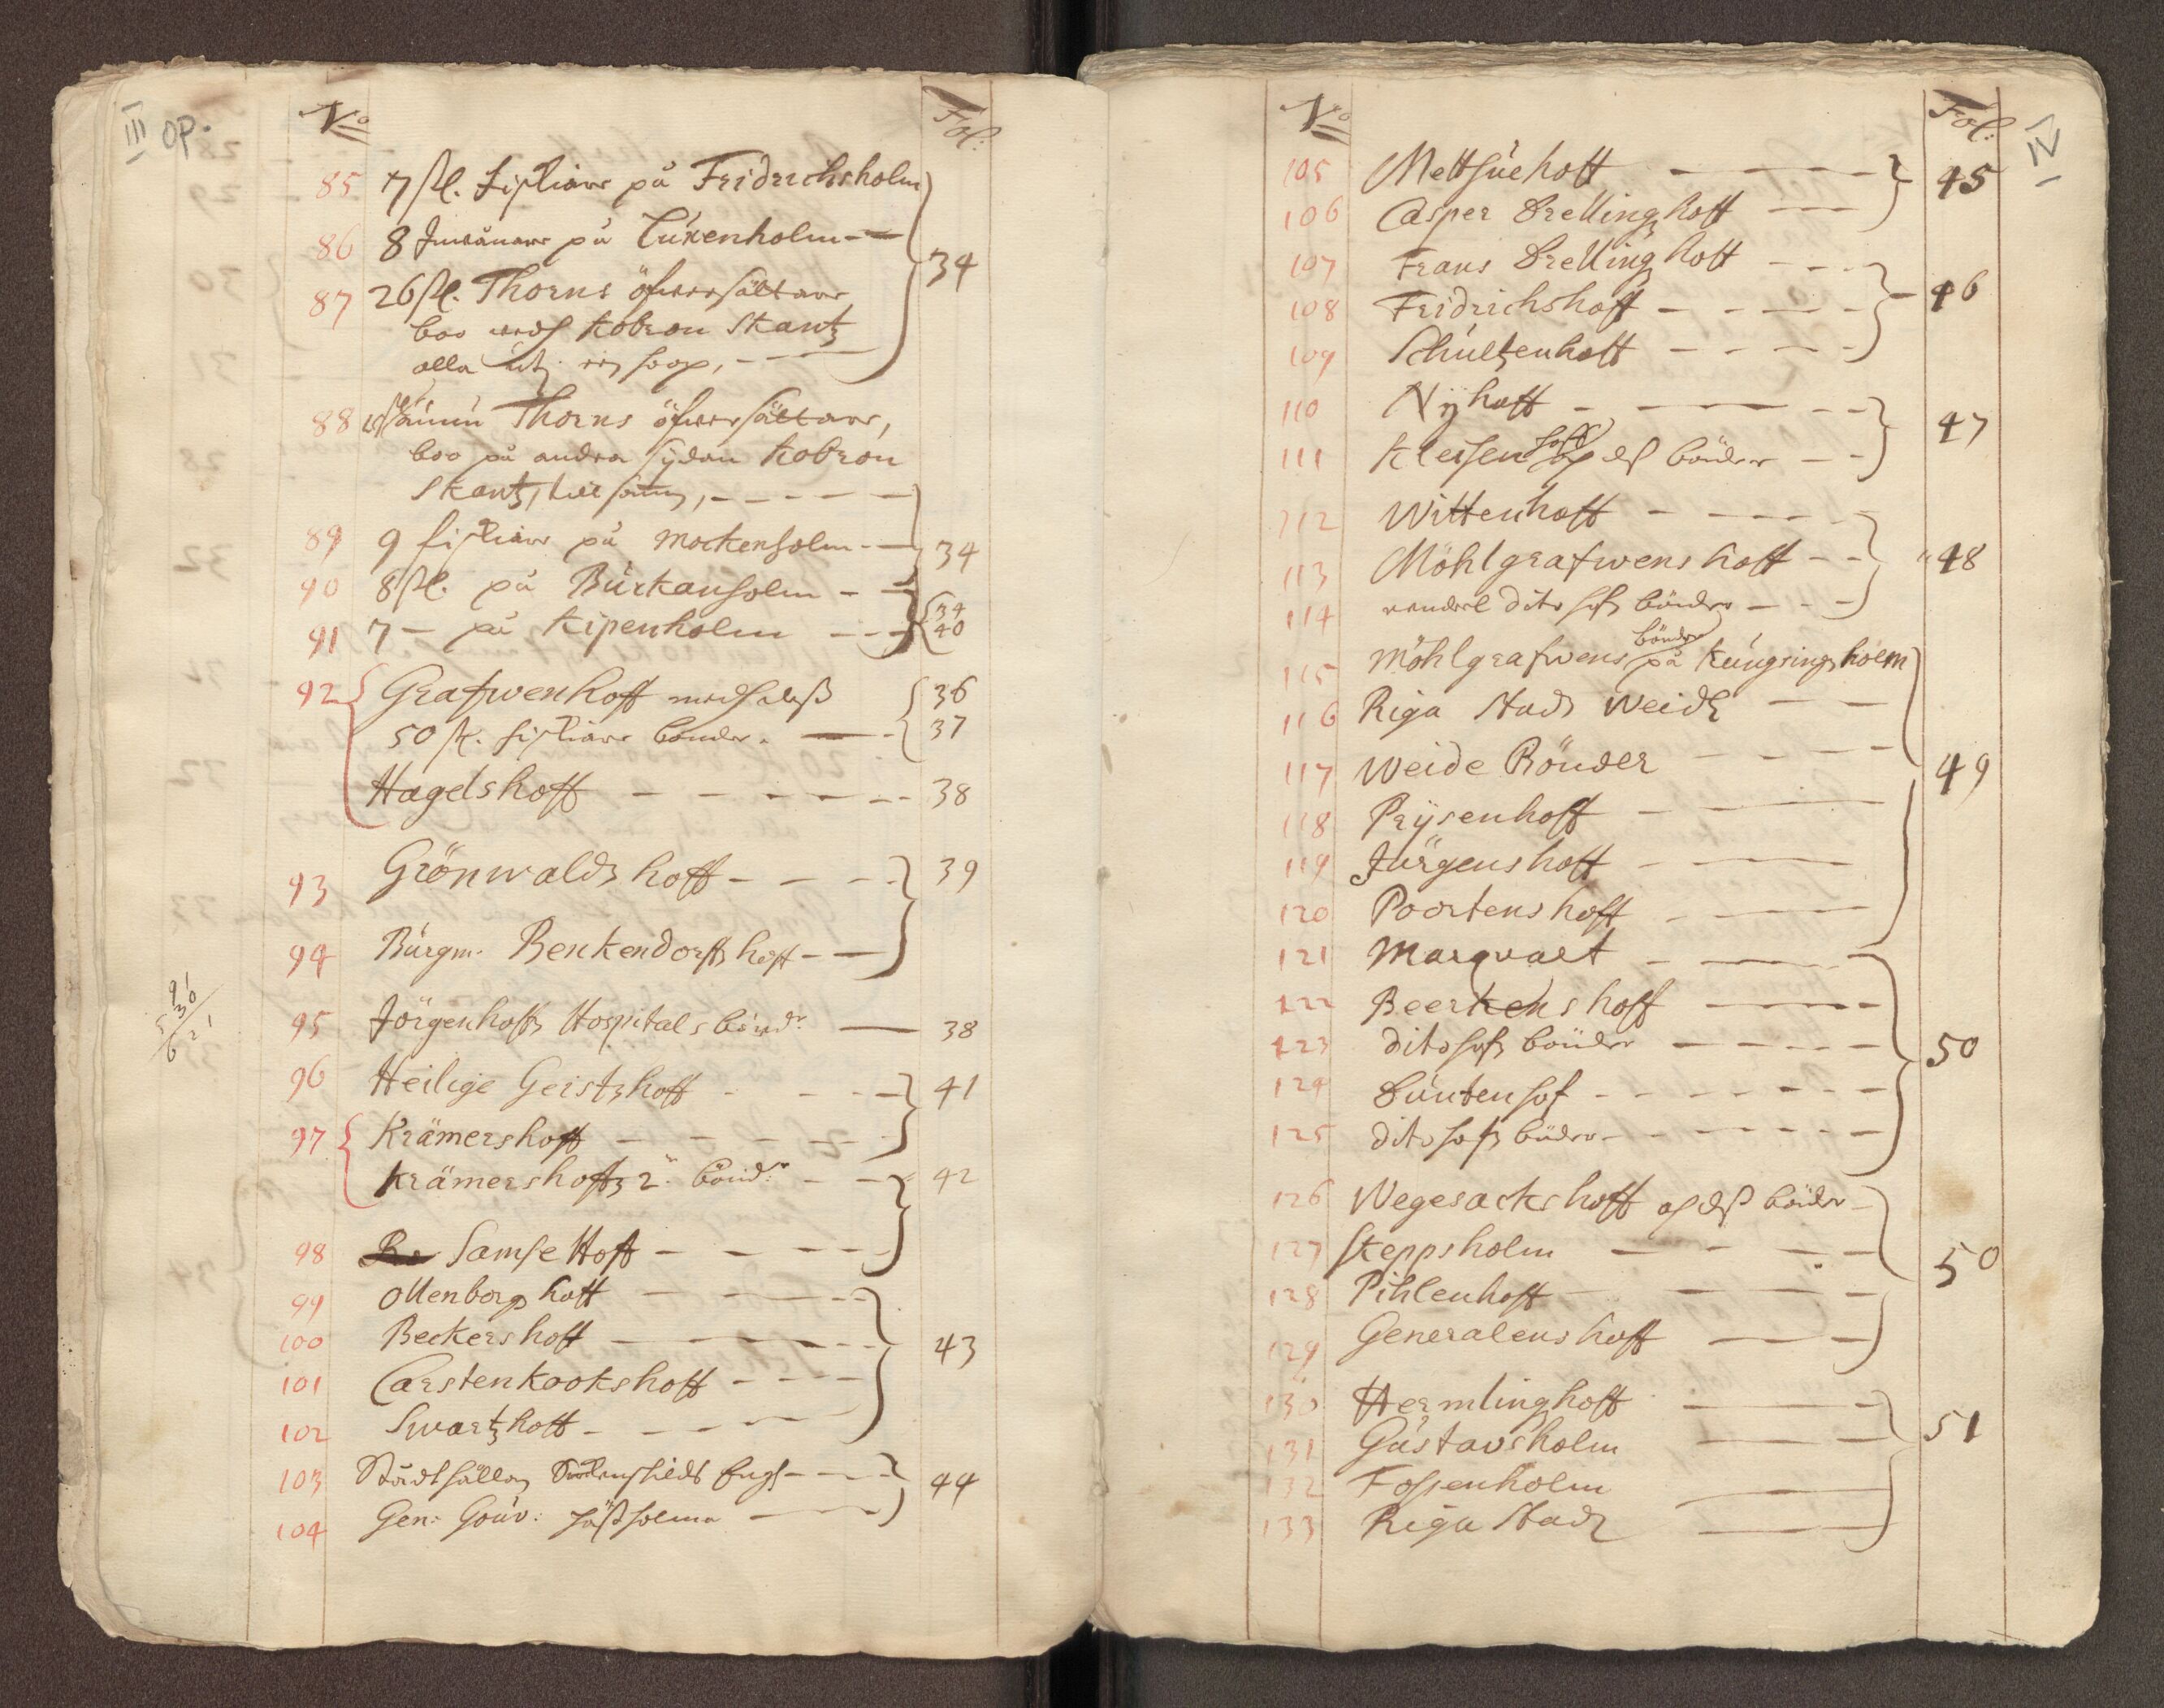 III op.
No Fol:
85 7 st. Fiskiare på Fridrichsholm
86 8 Inwånare på Luxenholm 34
87 26 st. Thorns öfwersättare
boo wedh Kobron Skantz
alla uti en hoop,
88 Thorns öfwersättare,
boo på andra sÿdan Kobron
Skantz,
89 9 fiskiare på Mockenholm 34
90 8 st. på Burkanholm 34
91 7 – på Kipenholm 40
92 Grafwenhoff medh deß 36
50 st. fiskiare bönder. 37
Hagelshoff 38
93 Grönwaldz hoff 39
94 Burgm. Benkendorffz hoff
95 Jörgenhoffz Hospitals bönd:r 38
96 Heilige Geistz hoff 41
97 Krämershoff
Krämershoffz 2. bönd:r 42
98 Samse Hoff
99 Ollenborgs hoff
100 Beckers hoff 43
101 Carstenkookshoff
102 Swartz hoff
103 Engh 44
104 Gen: Gouv: holma
IV
No Fol:
105 Mettsuehoff 45
106 Casper Drellingz hoff
107 Frans Drellingz hoff
108 Fridrichshoff 46
109 Schultzenhoff
110 Nÿhoff 47
hoff
111 Kleisen och deß bönder
112 Wittenhoff
113 Möhlgrafwens hoff 48
114 dito hofz bönder
bönder
115 Möhlgrafwens på Kungzingz holm
116 Riga Stadz Weide
117 Weide Bönder 49
118 Prÿsenhoff
119 Jürgenshoff
120 Poortenshoff
121 Marqvart
122 Beerkens hoff
123 dito hofz bönder 50
124 Duntenhof
125 dito hofz bönder
126 Wegesacks hoff och deß bönder
127 Skeppsholm 50
128 Pihlenhoff
129 Generalens hoff
130 Hermlinghoff
131 Gustavsholm 51
132 Fossenholm
133 Riga Stadz